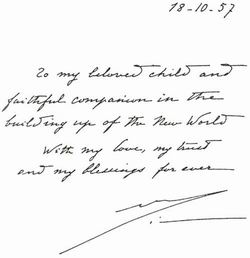 18-10-57
To my beloved child and
faithful companion in the
building up of the New World
With my love, my trust
and my blessings for ever